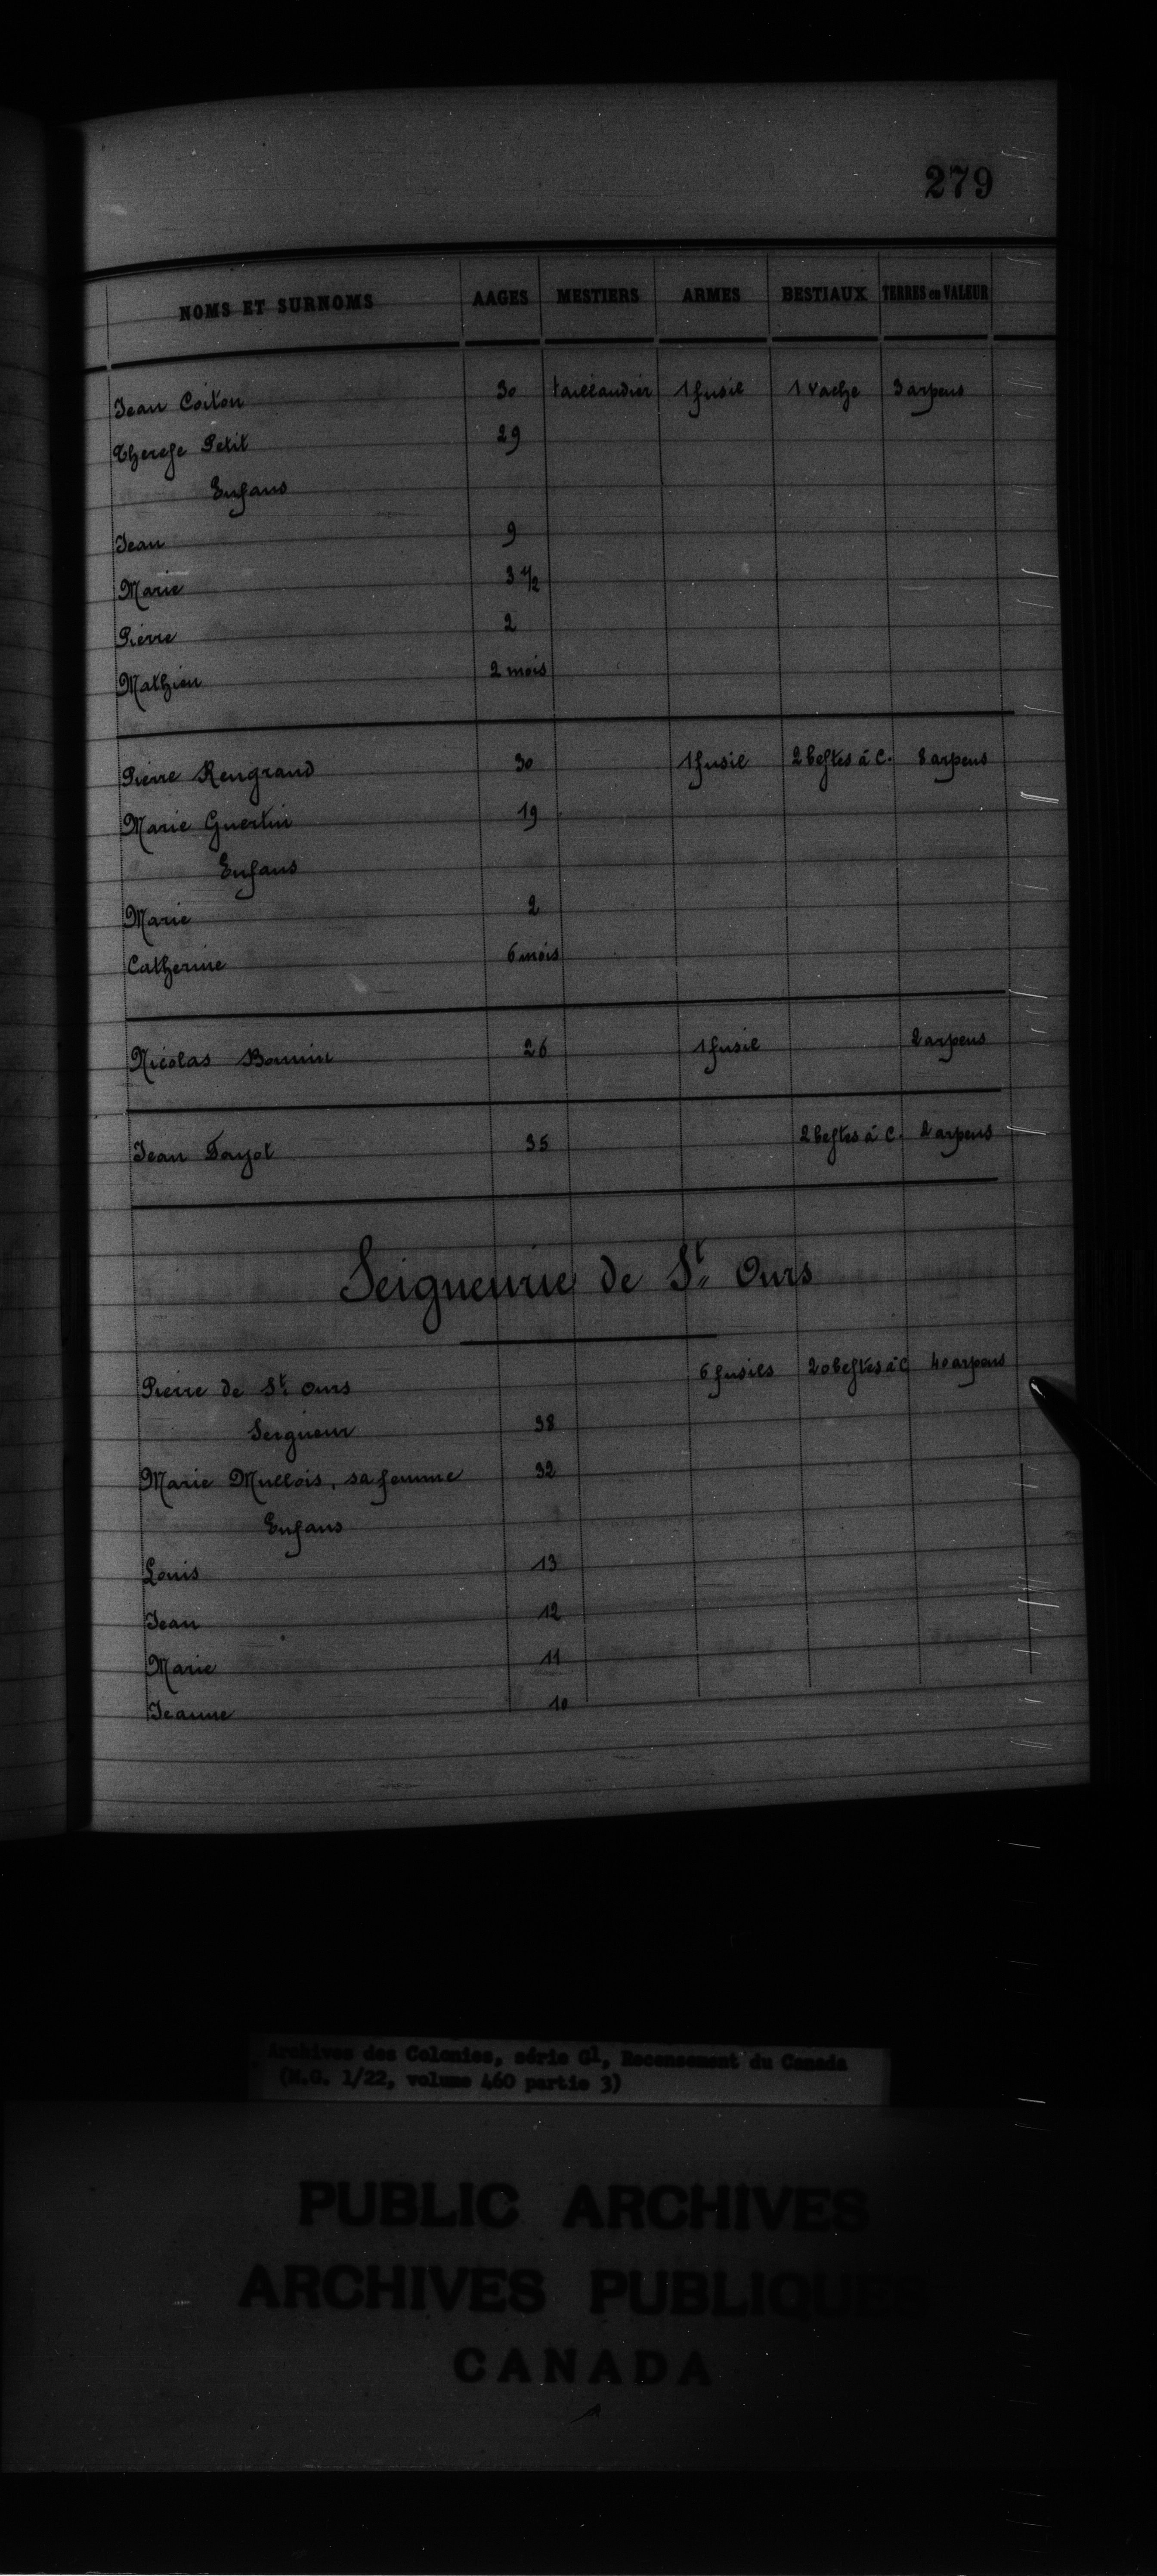 279
NOMS ET SURNOMS AAGES MESTIERS ARMES BESTIAUX TERRES en VALEUR
Jean Coiton 30 taillandier 1 fusil 1 vache 3 arpens
Therese Petit 29
Enfans
Jean 9
Marie 3 1/2
Pierre 2
Mathieu 2 mois
Pierre Rengrand 30 1 fusil 2 bestes à c. 8 arpens
Marie Guertin 19
Enfans
Marie 2
Catherine 6 mois
Nicolas Bonnin 26 1 fusil 2 arpens
Jean 35 2 bestes à c. 2 arpens
Seigneurie de St Ours
Pierre de St Ours 6 fusils 20 bestes à c 40 arpens
Seigneur 38
Marie Mullois, sa femme 32
Enfans
Louis 13
Jean 12
Marie 11
Jeanne 10
Archives des Colonies, série G1, Recensement du Canada
(M.G. 1/22, volume 460 partie 3)
PUBLIC ARCHIVES
ARCHIVES PUBLIQUES
CANADA